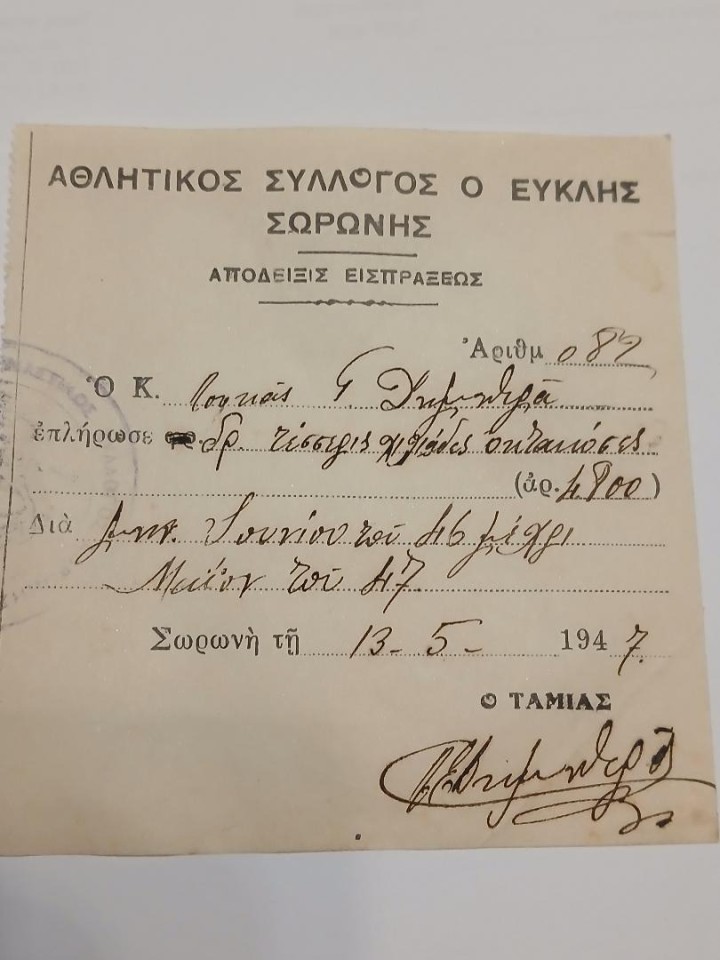 ΑΘΛΗΤΙΚΟΣ ΣΥΛΛΟΓΟΣ Ο ΕΥΚΛΗΣ
ΣΩΡΩΝΗΣ
ΑΠΟΔΕΙΞΙΣ ΕΙΣΠΡΑΞΕΩΣ
Ἀριθμ 082
Ὁ Κ. Λουκάς Γ. Δημητρᾶ
ἐπλήρωσε δρ. τέσσερις χιλιάδες οκτακόσιες
(ἀρ. 4800)
Διὰ μην. Ιουνίου τοῦ 46 μέχρι
Μαΐου τοῦ 47
Σωρωνὴ τῇ 13-5-1947.
Ο ΤΑΜΙΑΣ